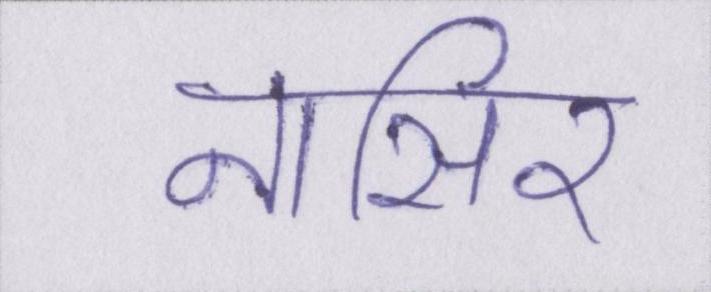 नासिर